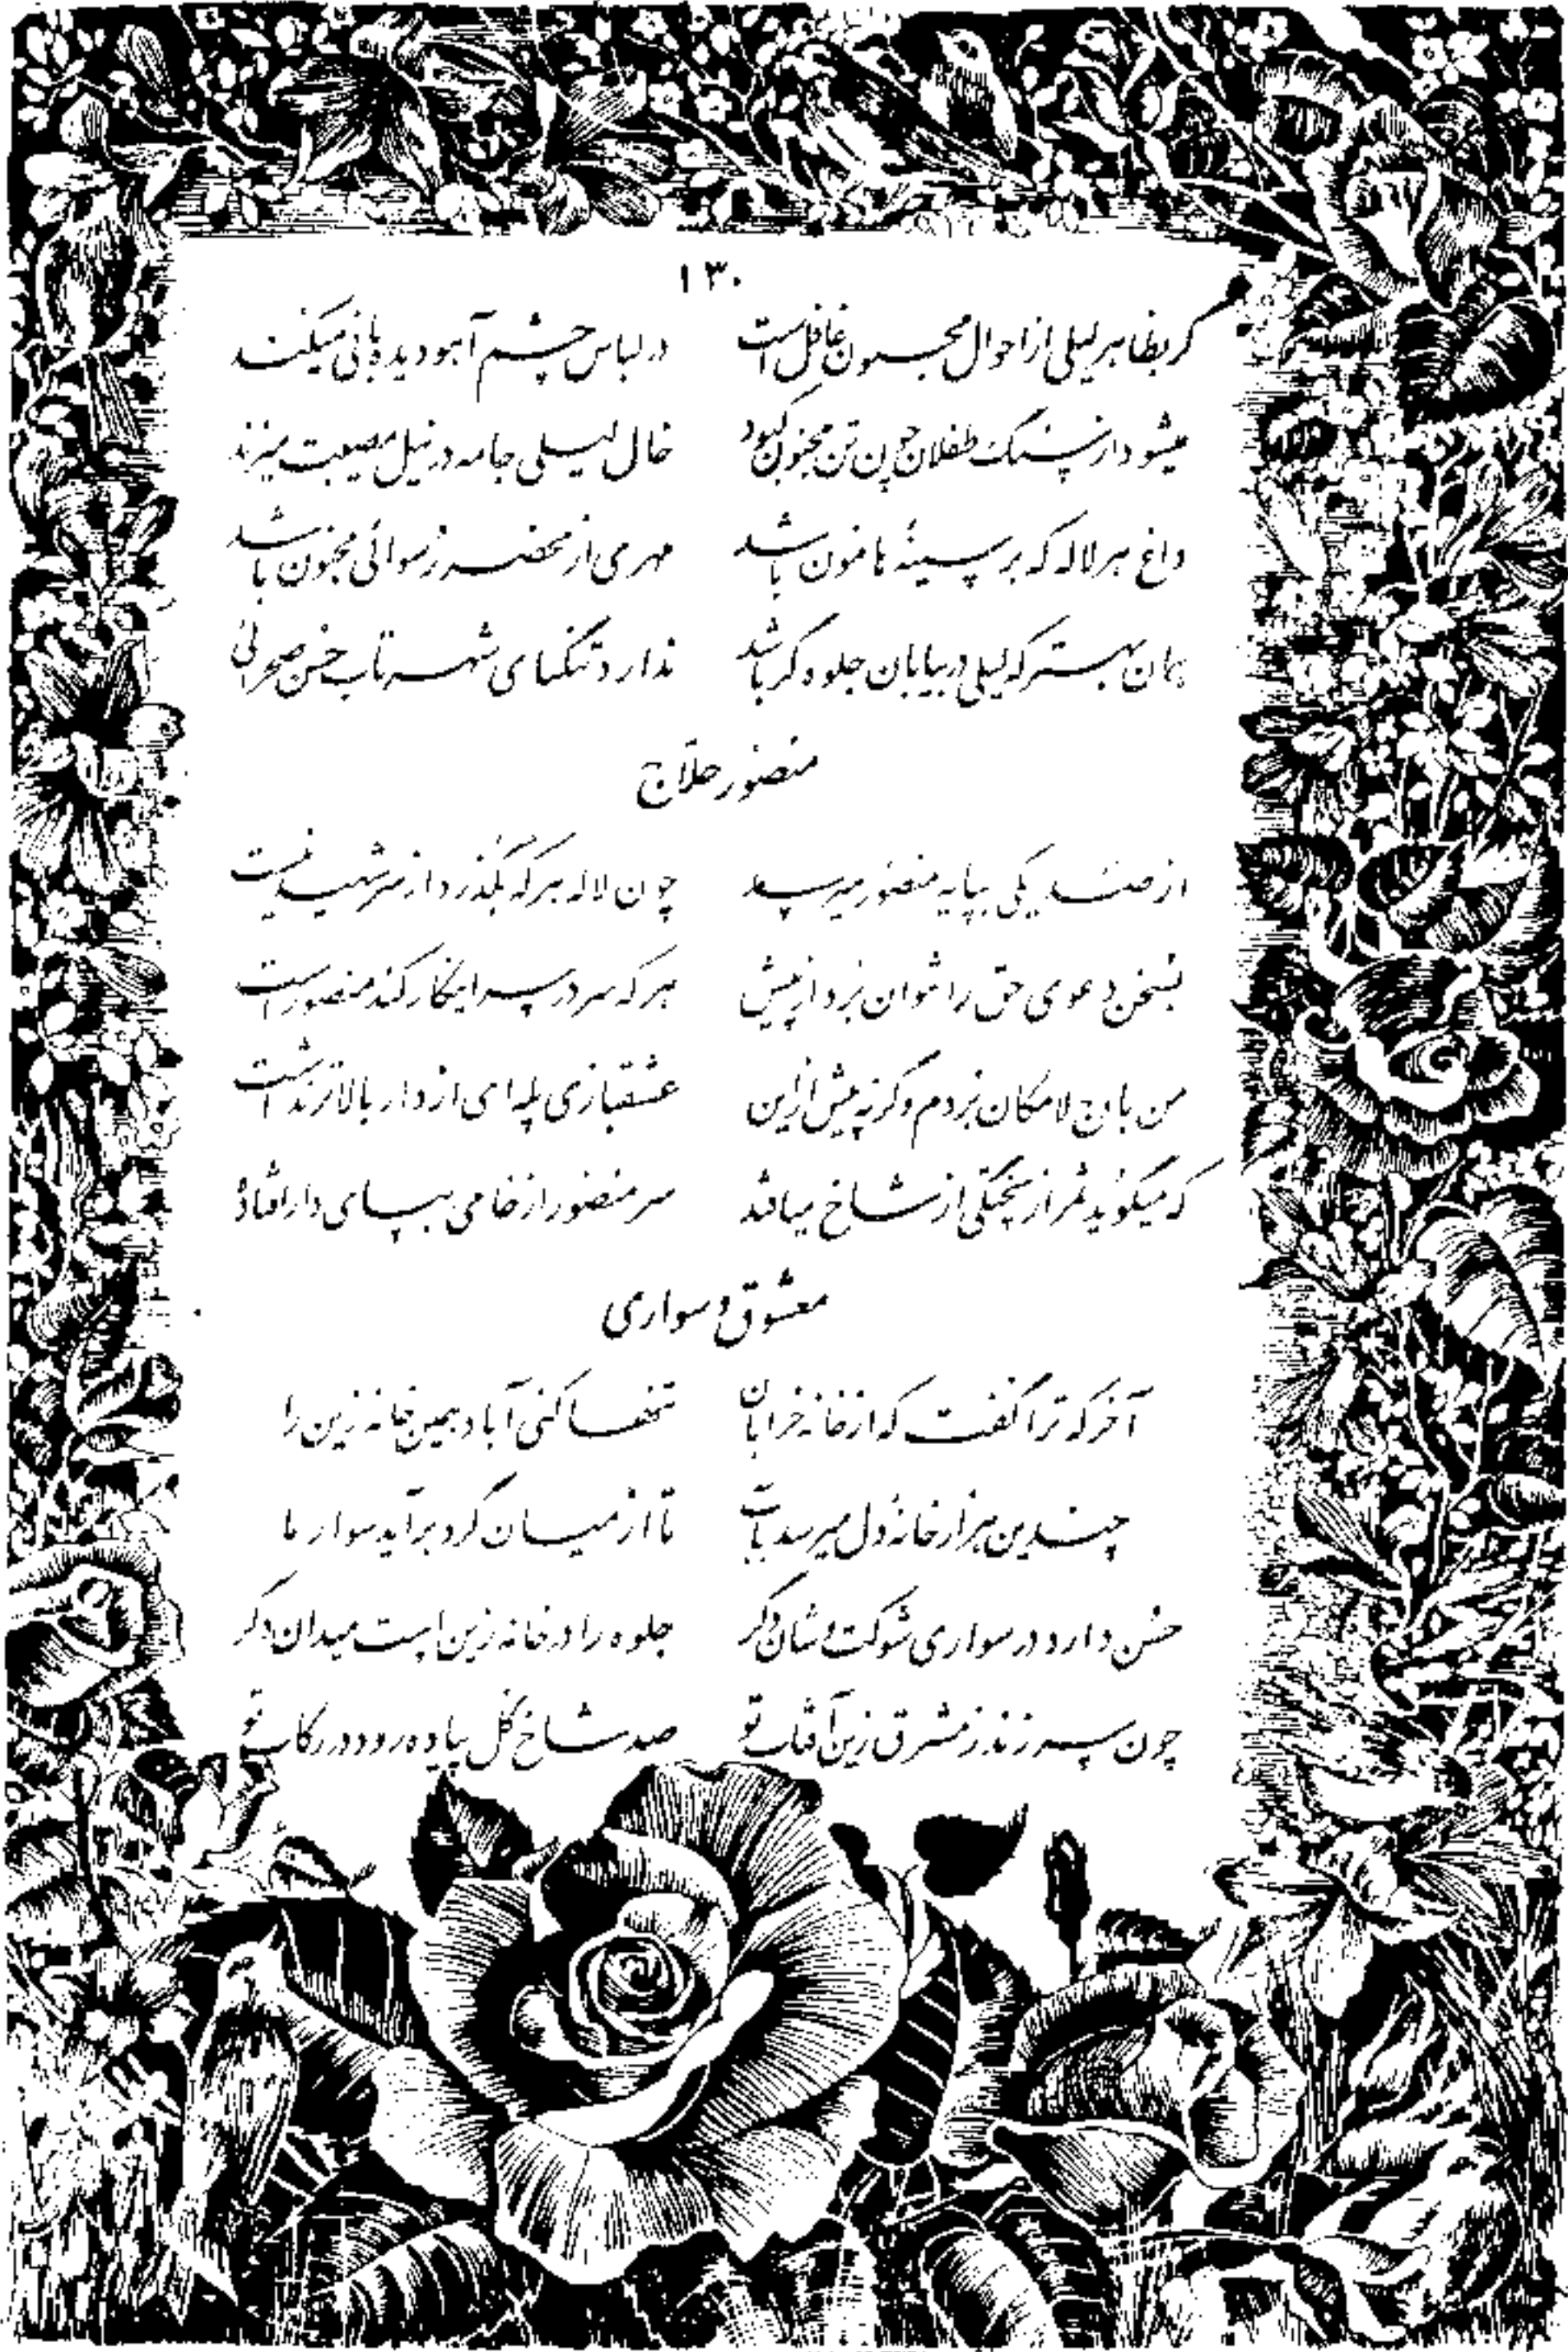 ۱۳۰
گر بظاهر لیلی از احوال مجنون غافل است    در لباس چشم آهو دیده بانی میکند
میشود از سنگ طفلان چون تن مجنون کبود    خال لیلی جامه در نیل مصیبت میزند
داغ هر لاله که بر سینهٔ هامون باشد    مهری از محضر رسوائی مجنون باشد
همان بهتر که لیلی در بیابان جلوه گر باشد    ندارد تنگنای شهر تاب حسن صحرائی
منصور حلاج
از صد یکی بپایه منصور میرسد    چون لاله هر که بگذرد از سر شهید نیست
بسخن دعوی حق را نتوان برد از پیش    هر که سر در سر اینکار کند منصور است
من باوج لامکان بردم وگرنه پیش ازین    عشقبازی پله‌ای از دار بالاتر نداشت
که میگوید ثمر از پختگی از شاخ میافتد    سر منصور از خامی بپای دار افتاده
معشوق و سواری
آخر که ترا گفت که از خانه خرابان    تنها کنی آباد همین خانه زین را
چندین هزار خانهٔ دل میرسد بآب    تا از میان گرد برآید سوار ما
حسن دارد در سواری شوکت و شان دگر    جلوه را در خانه زین است میدان دگر
چون سر زند ز مشرق زین آفتاب تو    صد شاخ گل پیاده رود در رکاب تو